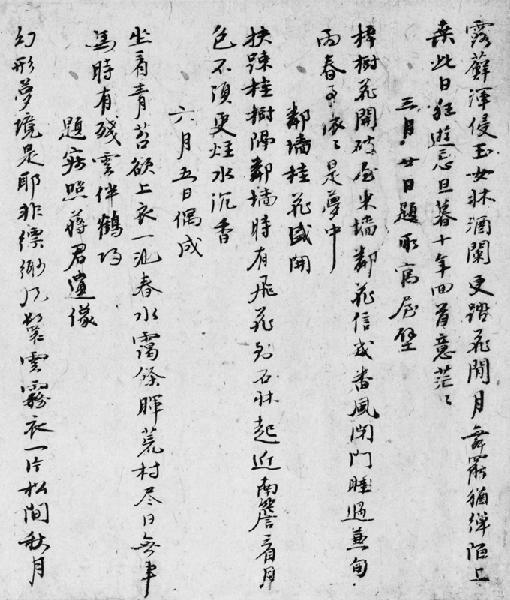 露蘚渾侵玉女牀酒闌更踏花間月舞罷猶彈陌上
桒此日狂遊忘旦暮十年回首意茫〻
三月廿日題所寓屋壁
梓樹花開破屋東墻鄰花信幾番風閉門睡過兼旬
雨春事依〻是夢中
鄰墻桂花盛開
扶疎桂樹隔鄰墻時有飛花到石牀起近南簷看月
色不須更炷水沉香
六月五日偶成
坐看青苔欲上衣一池春水靄餘暉荒村盡日無車
馬時有殘雲伴鶴歸
題寫照蔣君遺像
幻形夢境是耶非縹緲風鬟雲霧衣一片松間秋月